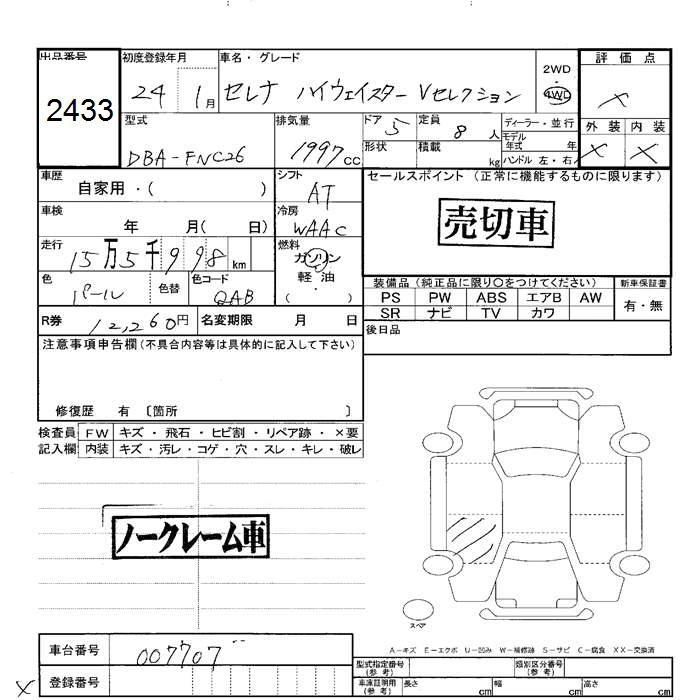 出品番号
2433
初度登録年月
24 1月
車名・グレード
セレナ ハイウェイスター Vセレクション
2WD
・
4WD
評価点
×
外装 内装
× ×
型式
DBA-FNC26
排気量
1997cc
ドア 5
定員 8人
形状
積載 kg
ディーラー・並行
モデル年式 年
ハンドル 左・右
車歴
自家用・( )
シフト
AT
セールスポイント(正常に機能するものに限ります)
売切車
車検
年 月( 日)
冷房
WAAC
走行
15万5千998km
燃料
ガソリン
軽・油
( ・ )
色
パール
色替
色コード
QAB
装備品(純正品に限り○をつけてください)
新車保証書
PS PW ABS エアB AW
SR ナビ TV カワ
有・無
R券 12,260円
名変期限 月 日
後日品
注意事項申告欄(不具合内容等は具体的に記入して下さい)
修復歴 有 〔箇所 〕
検査員記入欄
FW キズ・飛石・ヒビ割・リペア跡・×要
内装 キズ・汚レ・コゲ・穴・スレ・キレ・破レ
ノークレーム車
スペア
A-キズ E-エクボ U-凹み W-補修跡 S-サビ C-腐食 XX-交換済
車台番号 007707
× 登録番号
型式指定番号(参考)
類別区分番号(参考)
車庫証明用(参考) 長さ cm 幅 cm 高さ cm